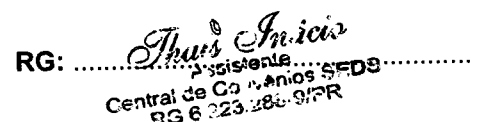 RG: Thais Inácio
Assistente
Central de Convênios SEDS
RG 6.223.286-9/PR